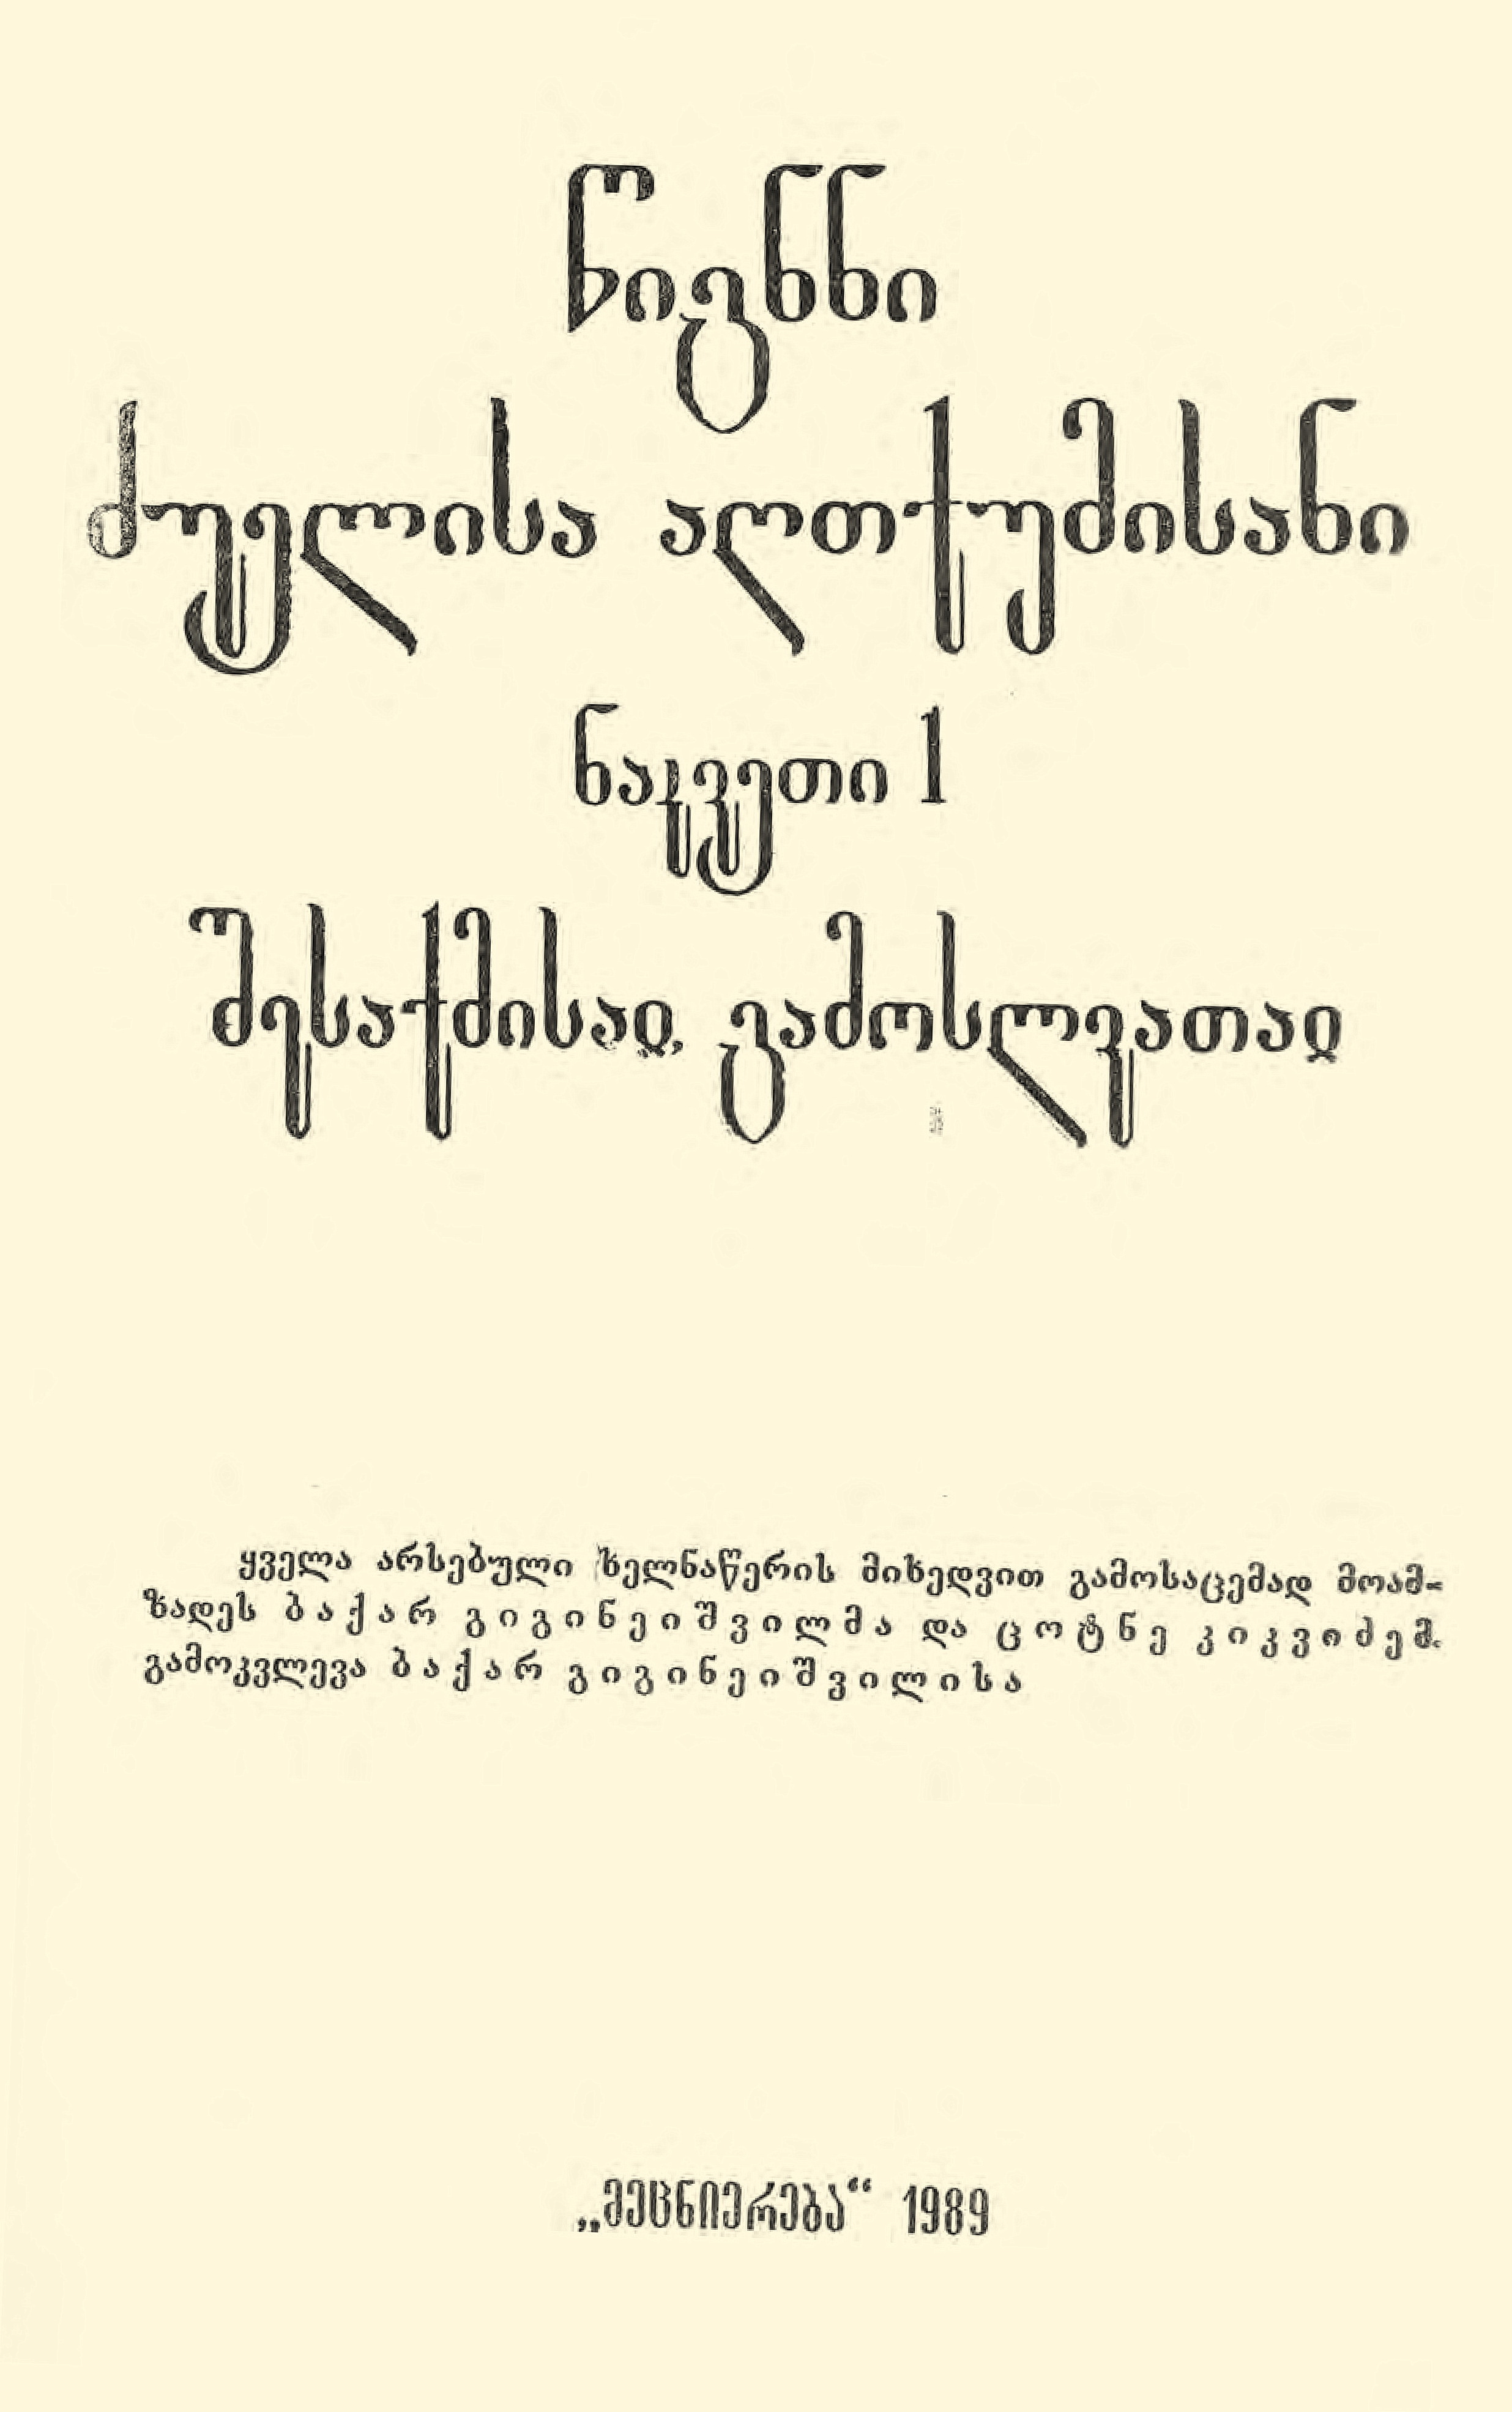 წიგნნი
ძუელისა აღთქუმისანი
ნაკვეთი 1
შესაქმისაჲ, გამოსლვათაჲ
ყველა არსებული ხელნაწერის მიხედვით გამოსაცემად მოამ-
ზადეს ბაქარ გიგინეიშვილმა და ცოტნე კიკვიძემ.
გამოკვლევა ბაქარ გიგინეიშვილისა
„მეცნიერება“ 1989